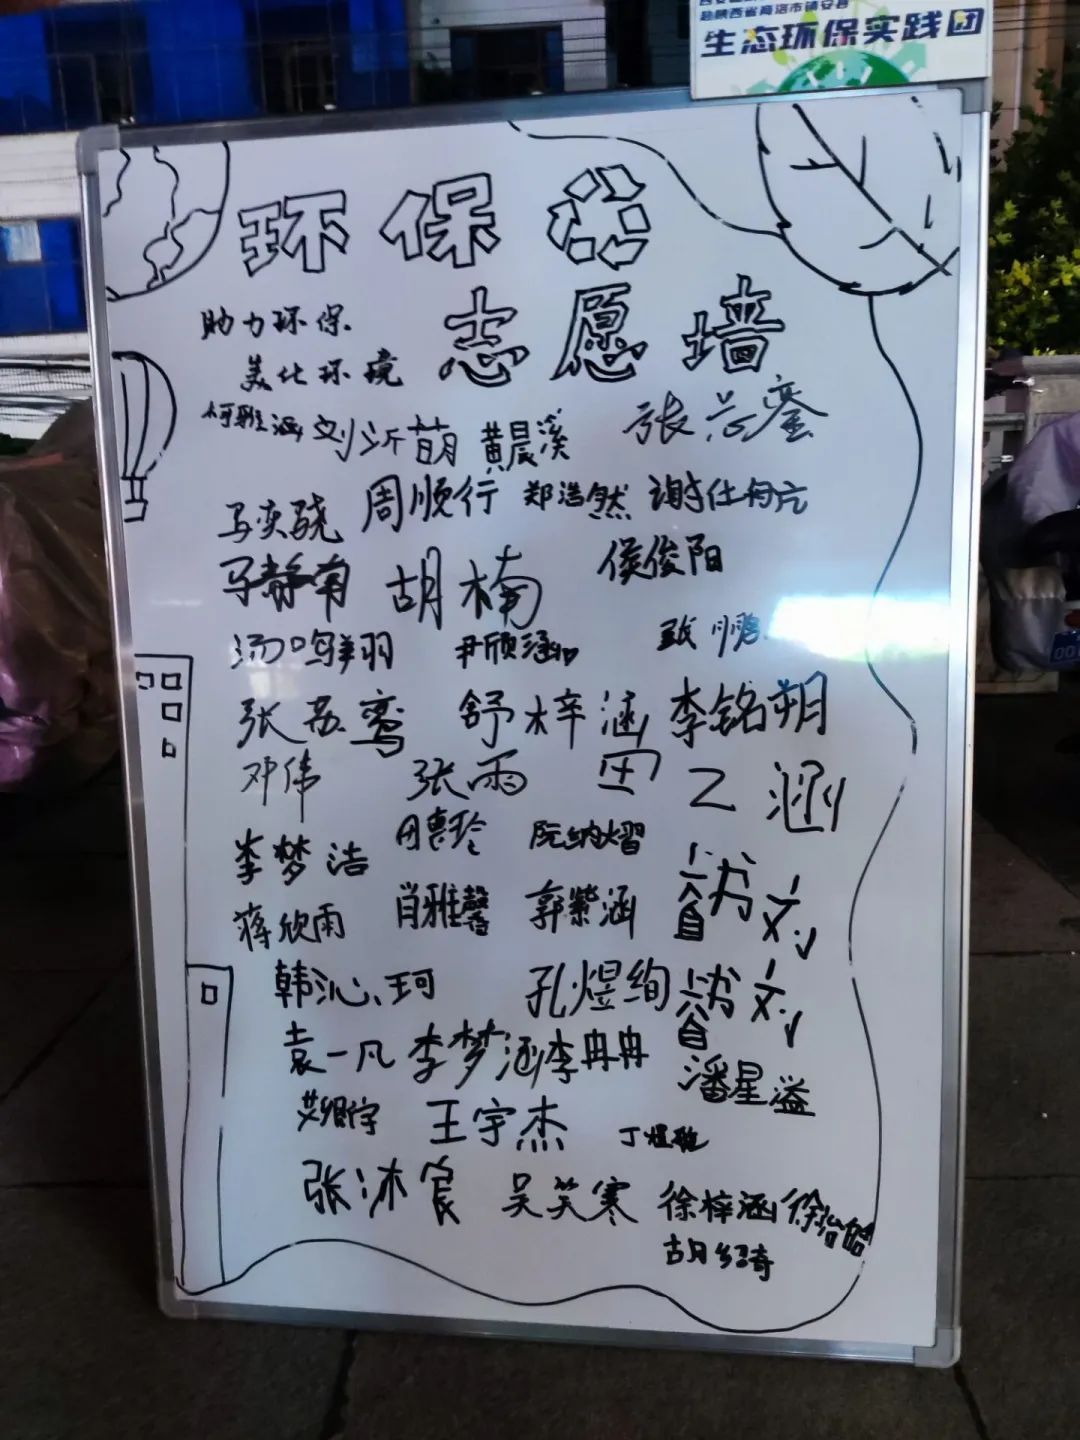 赴陕西省商洛市镇安县
生态环保实践团
环保
志愿墙
助力环保
美化环境
柯雅涵 刘沂萌 黄晨溪 张芯銮
马奕骁 周顺行 郑浩然 谢仕
马静南 胡楠 侯俊阳
汤鸣翔羽 尹欣涵 鹏
张芯鸾 舒梓涵 李铭朔
邓伟 张雨 田乙涵
李梦洁 田惠玲 阮纳熠
蒋欣雨 肖雅馨 郭紫涵
韩沁珂 孔煜绚
袁一凡 李梦涵 李冉冉
潘星溢
王宇杰 丁煜
张沐宸 吴笑寒 徐梓涵 徐
胡绍琦